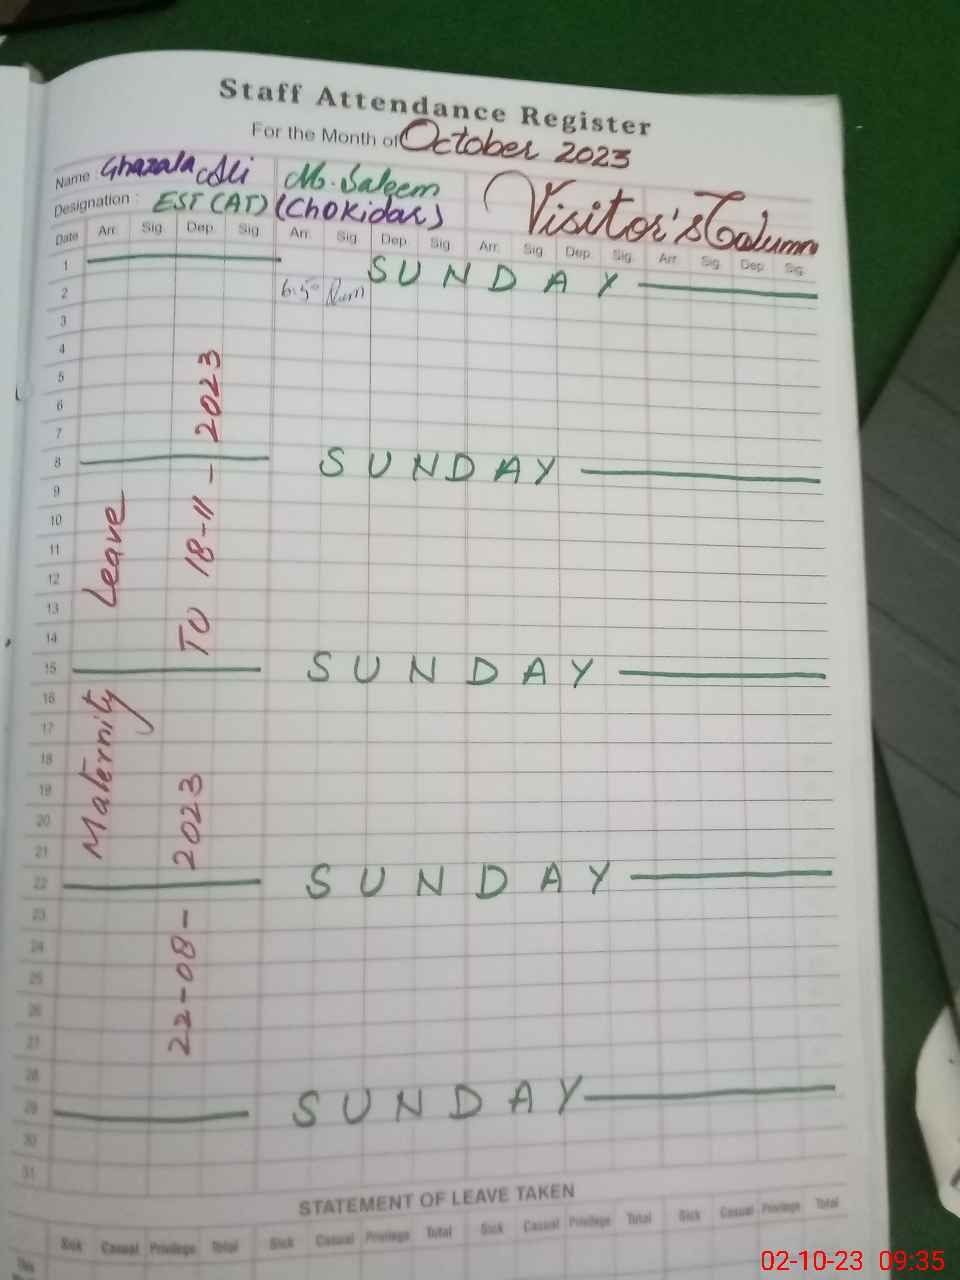 Staff Attendance Register
For the Month of October 2023
Name : Ghazala Ali M. Saleem Visitor's Column
Designation : EST (AT) (Chokidar)
Date Arr. Sig. Dep. Sig. Arr. Sig. Dep. Sig. Arr. Sig. Dep. Sig. Arr. Sig. Dep. Sig.
1 SUNDAY
2 6:50
3
4
5
6
7
8 SUNDAY
9
10
11
12
13
14
15 SUNDAY
16
17
18
19
20
21
22 SUNDAY
23
24
25
26
27
28
29 SUNDAY
30
31
Maternity Leave
22-08-2023 TO 18-11-2023
STATEMENT OF LEAVE TAKEN
Sick Casual Privilege Total Sick Casual Privilege Total Sick Casual Privilege Total Sick Casual Privilege Total
This
02-10-23 09:35